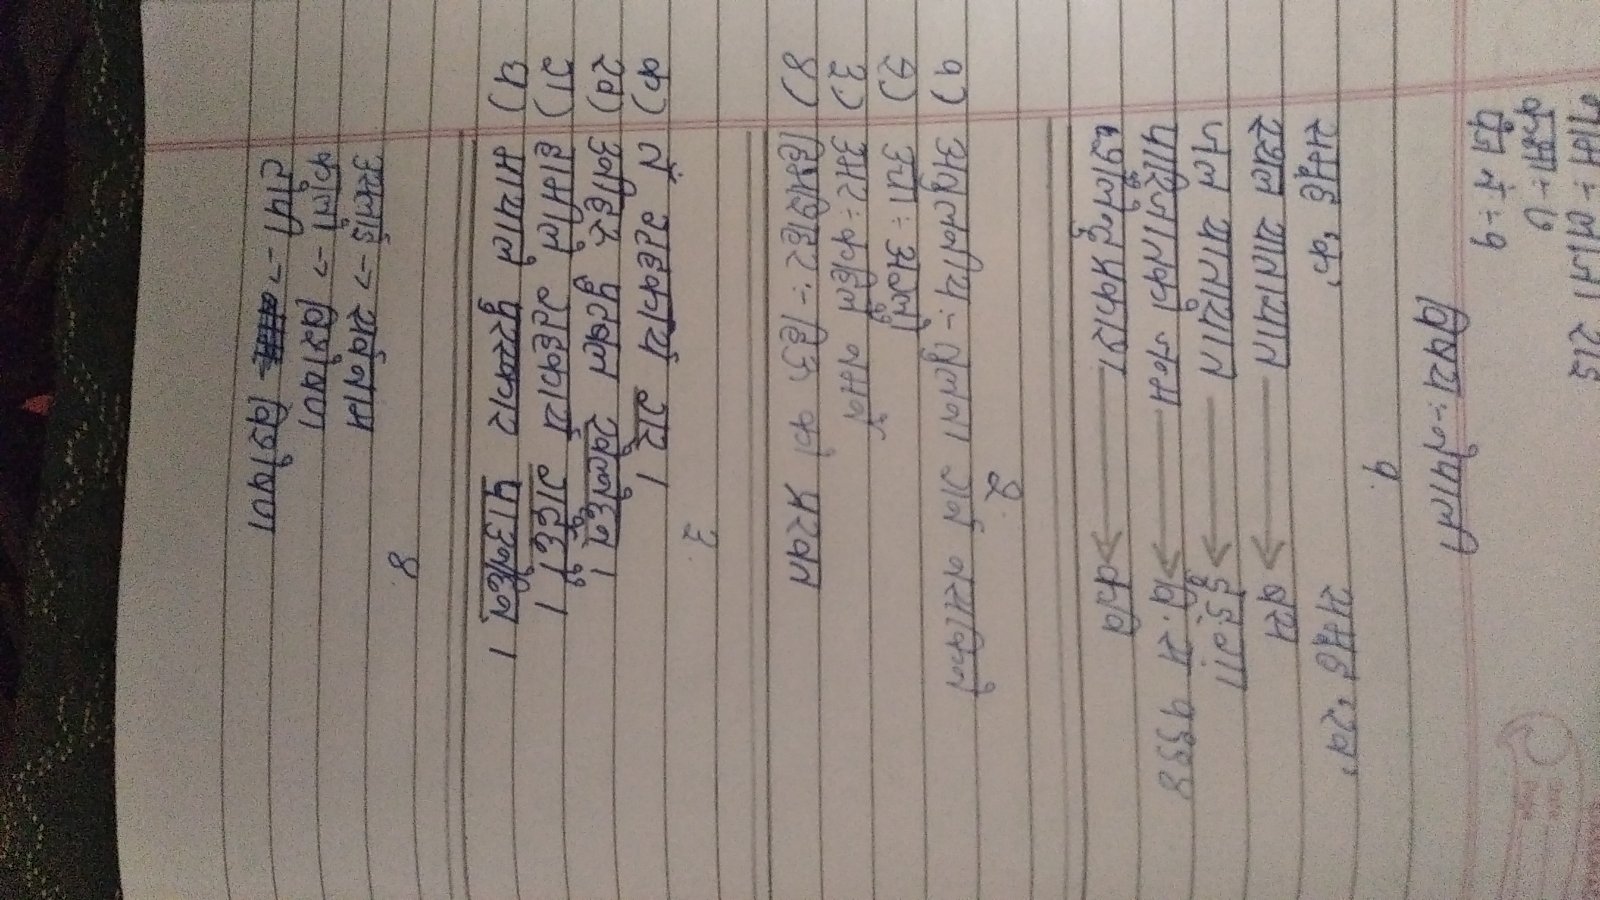 नाम :- लाजना राई
कक्षा :- ७
पेज नं :- १
विषय :- नेपाली
१.
समूह 'क' समूह 'ख'
स्थल यातायात → बस
जल यातायात → डुङ्गा
पारिजातको जन्म → वि.स १९९४
क्षेत्र प्रकाश → कवि
२.
१) अतुलनीय :- तुलना गर्न नसकिने
२) उँचा :- अग्लो
३) अमर :- कहिले नमर्ने
४) हिमशिखर :- हिऊ को पर्वत
३.
क) तँ गृहकार्य गर् ।
ख) उनीहरू फुटबल खेल्छन् ।
ग) हामीले गृहकार्य गर्छौं ।
घ) मायाले पुरस्कार पाउनेछिन् ।
४.
उसलाई → सर्वनाम
कालो → विशेषण
टोपी → विशेषण